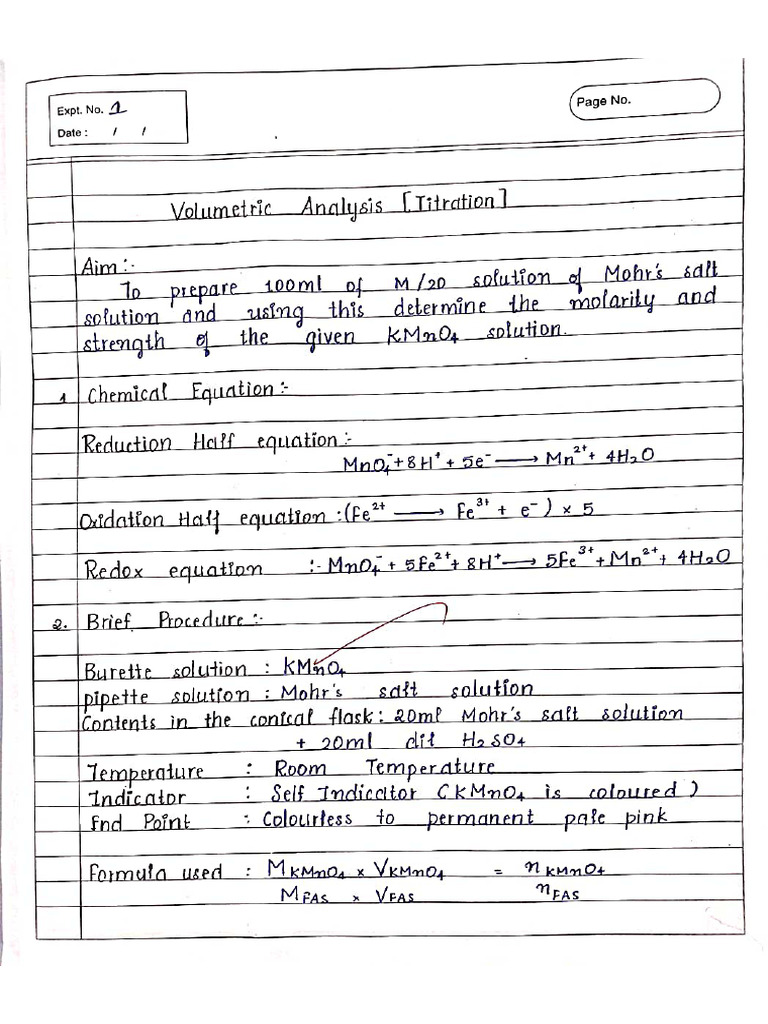 Expt. No. 1
Page No.
Date : / /
Volumetric Analysis [Titration]
Aim:-
To prepare 100ml of M/20 solution of Mohr's salt
solution and using this determine the molarity and
strength of the given KMnO₄ solution.
1 Chemical Equation:-
Reduction Half equation:-
MnO₄⁻ + 8H⁺ + 5e⁻ ⟶ Mn²⁺ + 4H₂O
Oxidation Half equation :(Fe²⁺ ⟶ Fe³⁺ + e⁻) × 5
Redox equation :- MnO₄⁻ + 5Fe²⁺ + 8H⁺ ⟶ 5Fe³⁺ + Mn²⁺ + 4H₂O
2. Brief Procedure:-
Burette solution : KMnO₄
pipette solution : Mohr's salt solution
Contents in the conical flask : 20ml Mohr's salt solution
+ 20ml dil H₂SO₄
Temperature : Room Temperature
Indicator : Self Indicator (KMnO₄ is coloured)
End Point : Colourless to permanent pale pink
Formula used : M KMnO₄ × V KMnO₄ = n KMnO₄
M FAS × V FAS n FAS